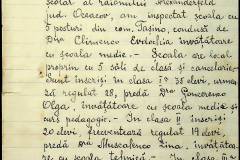 școlar al raionului Alexanderfeld
jud. Oceacov, am inspectat școala cu
5 posturi din com. Tașino, condusă de
Dra Climenco Evdochia, învățătoare
cu școala medie. – Școala are local
propriu cu 5 săli de clasă și cancelarie.
Sunt înscriși în clasa I 35 elevi, urmea-
ză regulat 28, predă Dra Goncerenco
Olga, învățătoare cu școala medie și
curs pedagogic. – În clasa II înscriși
20 elevi, frecventează regulat 19 elevi,
predă Dra Muscafenco Lina, învățătoa-
re cu școala tehnică. – În clasa III